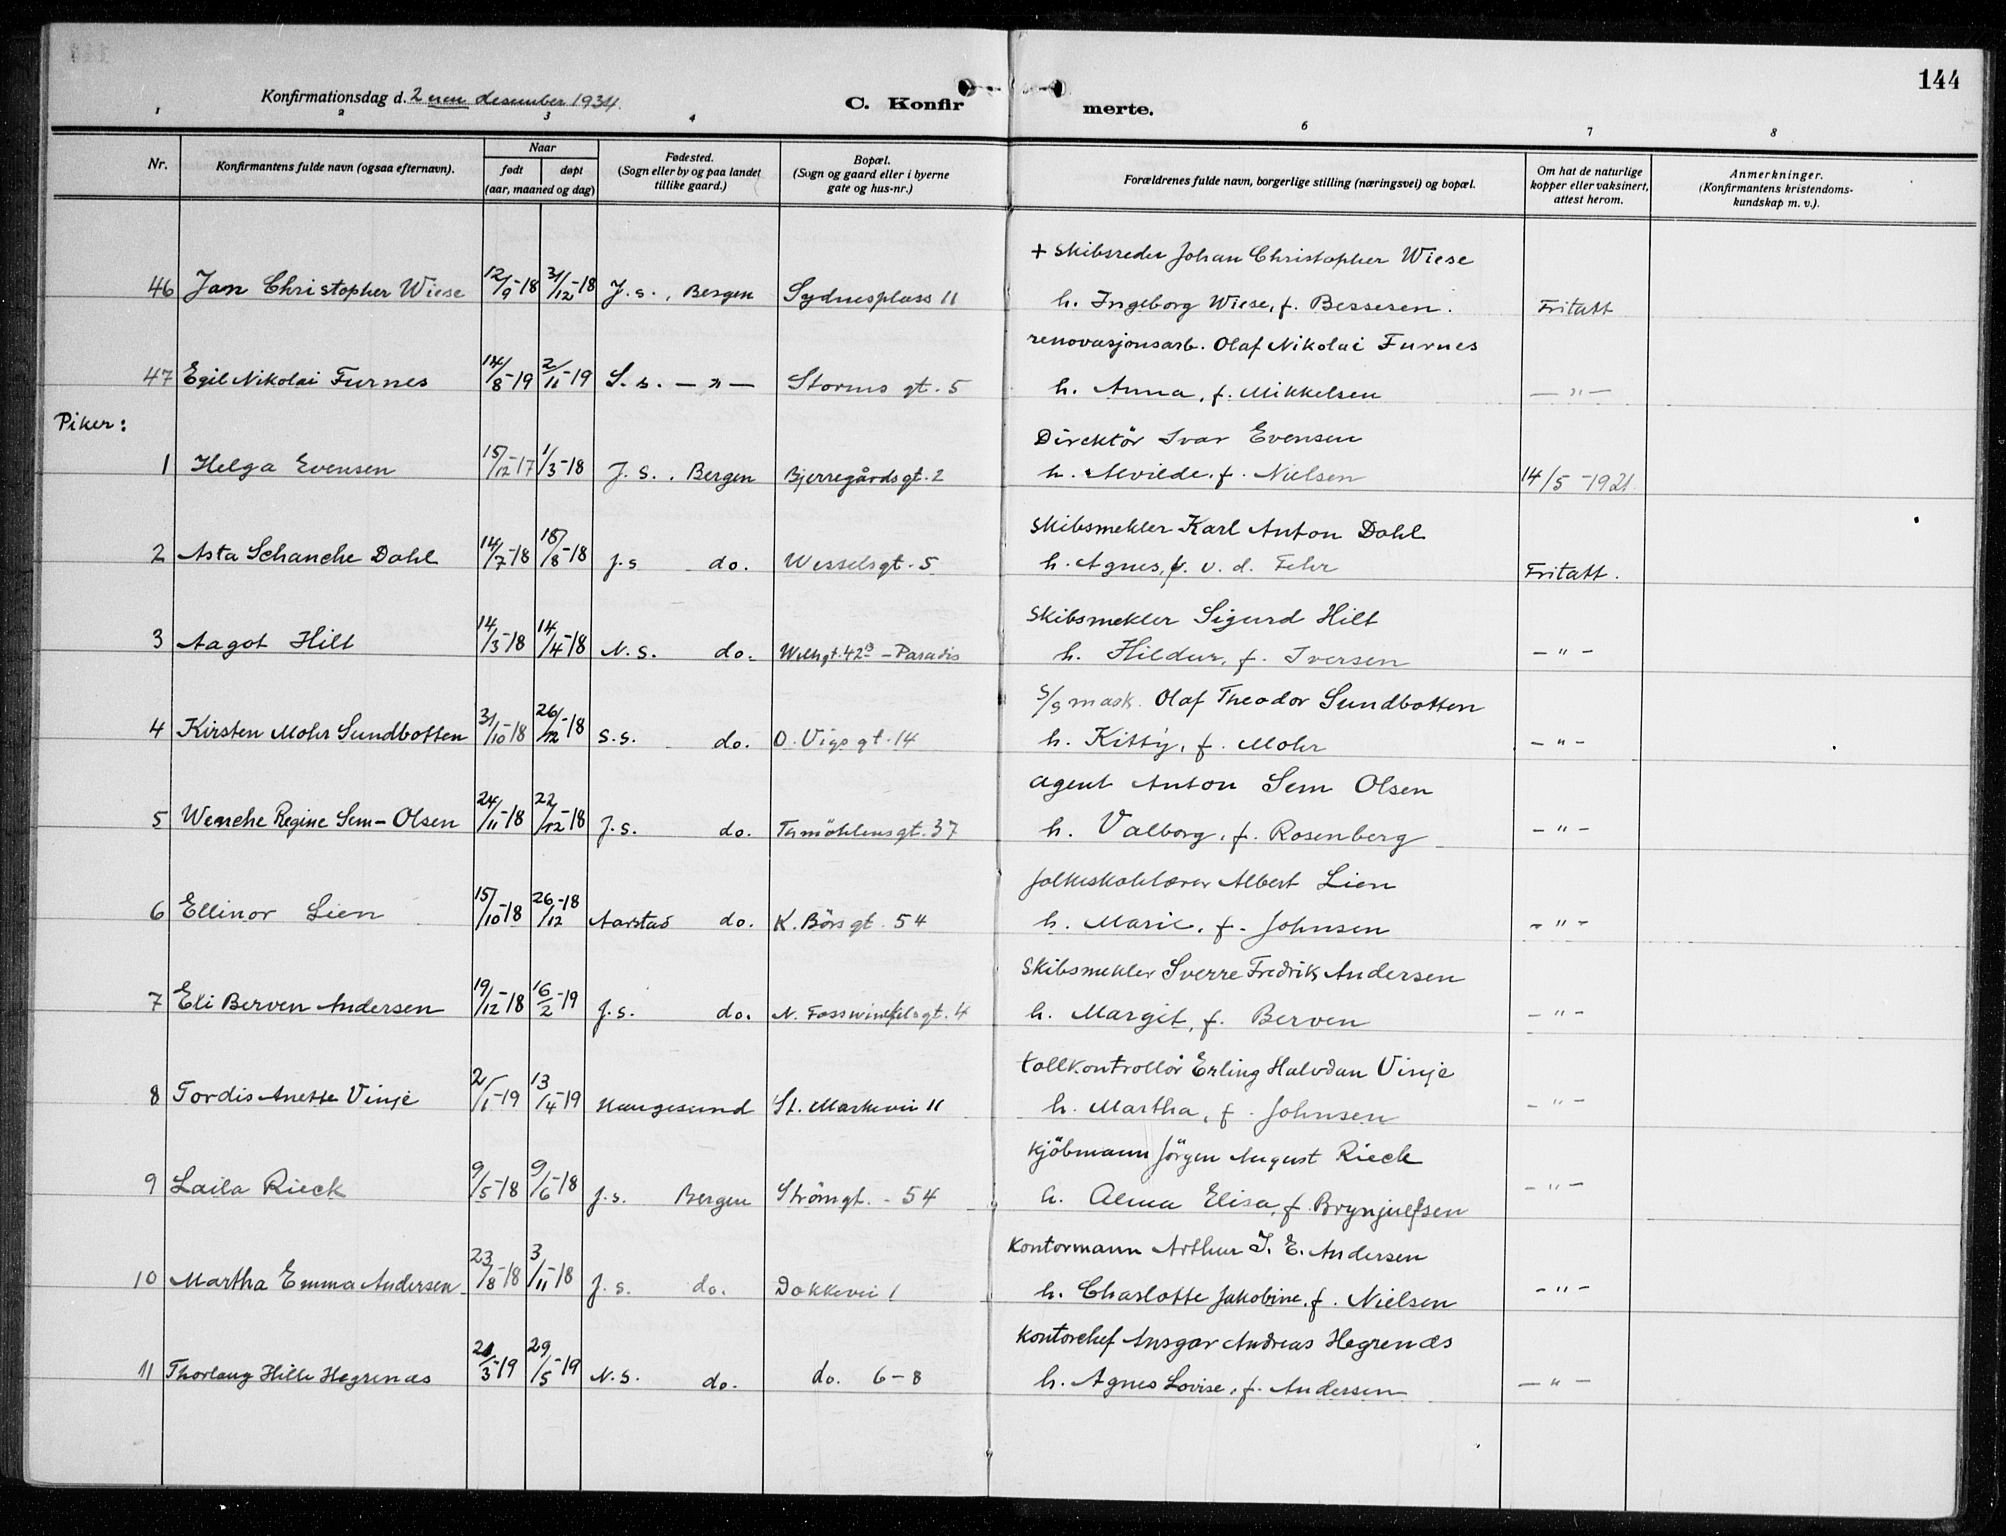 144
Konfirmationsdag d. 2nen desember 1934.
C. Konfir merte.
1 2 3 4 6 7 8
Nr.
Konfirmantens fulde navn (ogsaa efternavn).
Naar
født døpt
(aar, maaned og dag)
Fødested.
(Sogn eller by og paa landet
tillike gaard.)
Bopæl.
(Sogn og gaard eller i byerne
gate og hus-nr.)
Forældrenes fulde navn, borgerlige stilling (næringsvei) og bopæl.
Om hat de naturlige
kopper eller vaksinert,
attest herom.
Anmerkninger.
(Konfirmantens kristendoms-
kundskap m. v.).
+ Skibsreder Johan Christopher Wiese
46 Jan Christopher Wiese 12/9-18 31/12-18 J. s., Bergen Sydnesplass 11 h. Ingeborg Wiese, f. Bessesen. Fritatt
renovasjonsarb. Olaf Nikolai Furnes
47 Egil Nikolai Furnes 14/8-19 2/11-19 S. s. — " — Storms gt. 5 h. Anna, f. Mikkelsen — " —
Piker:
Direktör Ivar Evensen
1 Helga Evensen 15/12-17 1/3-18 J. S., Bergen Bjerregårdsgt. 2 h. Alvilde, f. Nielsen 14/5-1921.
Skibsmekler Karl Anton Dahl
2 Asta Schanche Dahl 14/7-18 18/8-18 J. s do. Wesselsgt. 5 h. Agnes, f. v. d. Fehr Fritatt.
Skibsmekler Sigurd Hilt
3 Aagot Hilt 14/3-18 14/4-18 N. s. do. Welhgt. 42B - Paradis h. Hildur, f. Iversen — " —
S/S mask. Olaf Theodor Sundbotten
4 Kirsten Mohr Sundbotten 31/10-18 26/12-18 S. s. do. O. Vigs gt. 14 h. Kitty, f. Mohr — " —
agent Anton Sem Olsen
5 Wenche Regine Sem-Olsen 24/11-18 22/12-18 J. s. do. Thmöhlensgt. 37 h. Valborg, f. Rosenberg — " —
folkeskolelærer Albert Lien
6 Ellinor Lien 15/10-18 26/12-18 Aarstad do. K. Börs gt. 54 h. Marie, f. Johnsen — " —
Skibsmekler Sverre Fredrik Andersen
7 Eli Berven Andersen 19/12-18 16/2-19 J. s. do. N. Fosswinkelsgt. 4 h. Margit, f. Berven — " —
tollkontrollör Erling Halvdan Vinje
8 Tordis Anette Vinje 2/1-19 13/4-19 Haugesund St. Markevei 11 h. Martha, f. Johnsen — " —
Kjöbmann Jörgen August Rieck
9 Laila Rieck 9/5-18 9/6-18 J. s. Bergen Strömgt. - 54 h. Alma Elisa, f. Brynjulfsen — " —
Kontormann Arthur J. E. Andersen
10 Martha Emma Andersen 23/8-18 3/11-18 J. s. do. Dokkevei 1 h. Charlotte Jakobine, f. Nielsen — " —
Kontorchef Ansgar Andreas Hegrenæs
11 Thorlaug Hille Hegrenæs 21/3-19 29/5-19 N. s. do. do. 6-8 h. Agnes Lovise, f. Andersen — " —